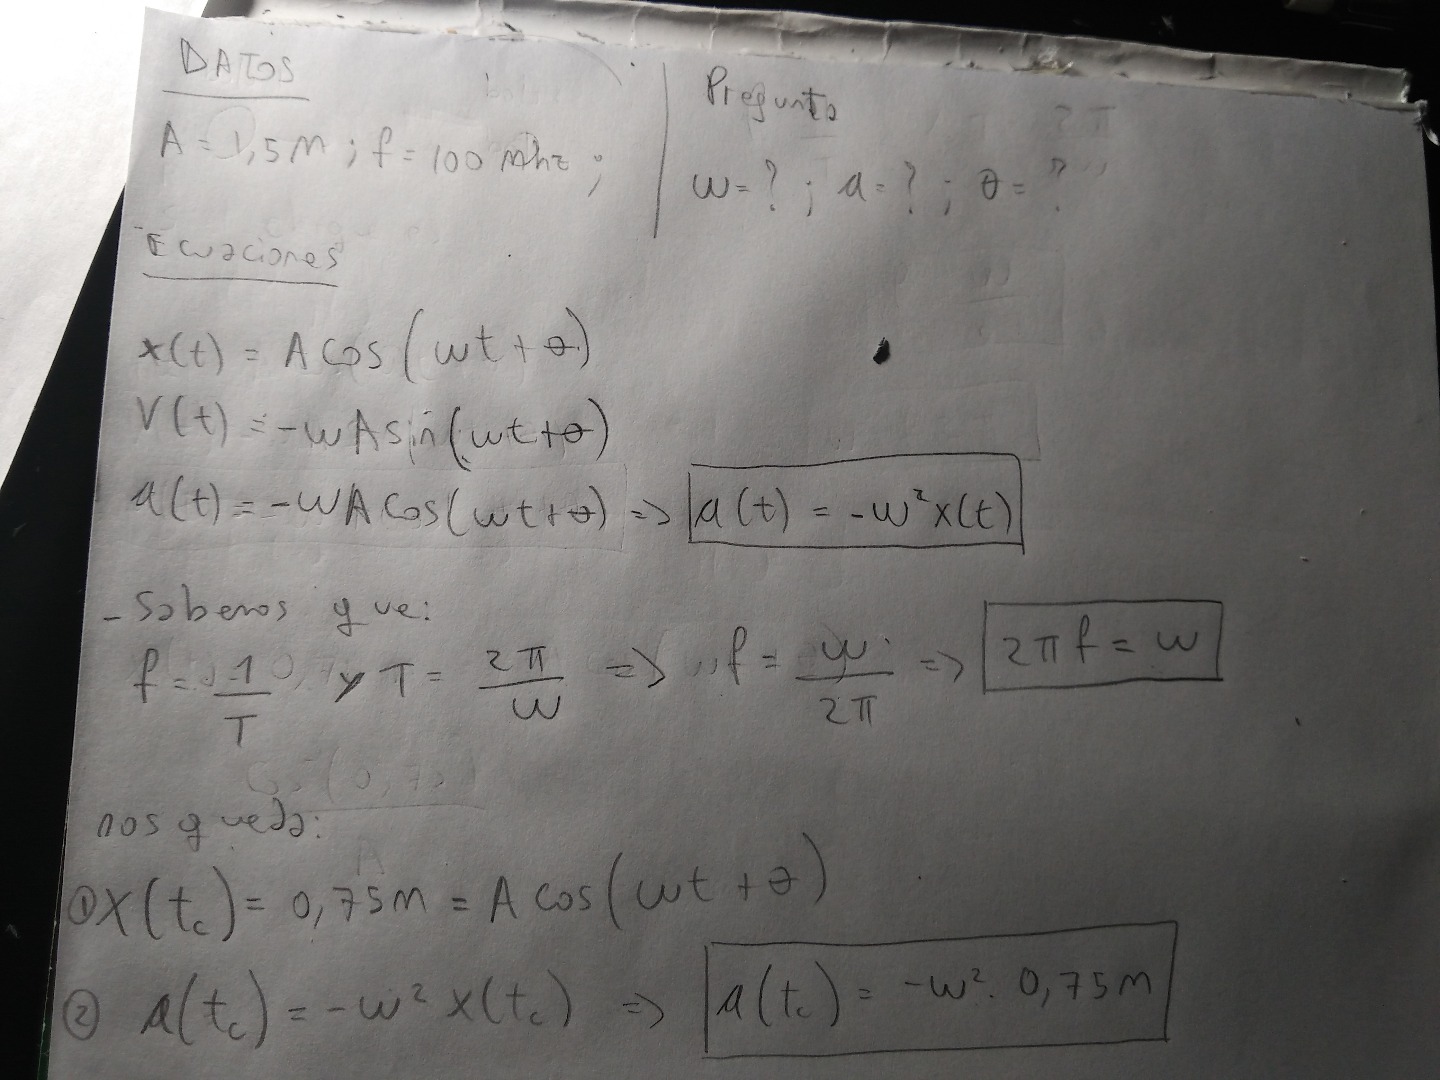 DATOS
A = 1,5m ; f = 100 Mhz ;
Pregunta
w = ? ; a = ? ; θ = ?
Ecuaciones
x(t) = A cos (wt + θ)
V(t) = -wA sin (wt + θ)
a(t) = -wA cos (wt + θ) => a(t) = -w²x(t)
- Sabemos que:
f = 1/T y T = 2π/w => f = w/2π => 2πf = w
nos queda:
① X(tc) = 0,75m = A cos (wt + θ)
② a(tc) = -w² x(tc) => a(tc) = -w². 0,75m